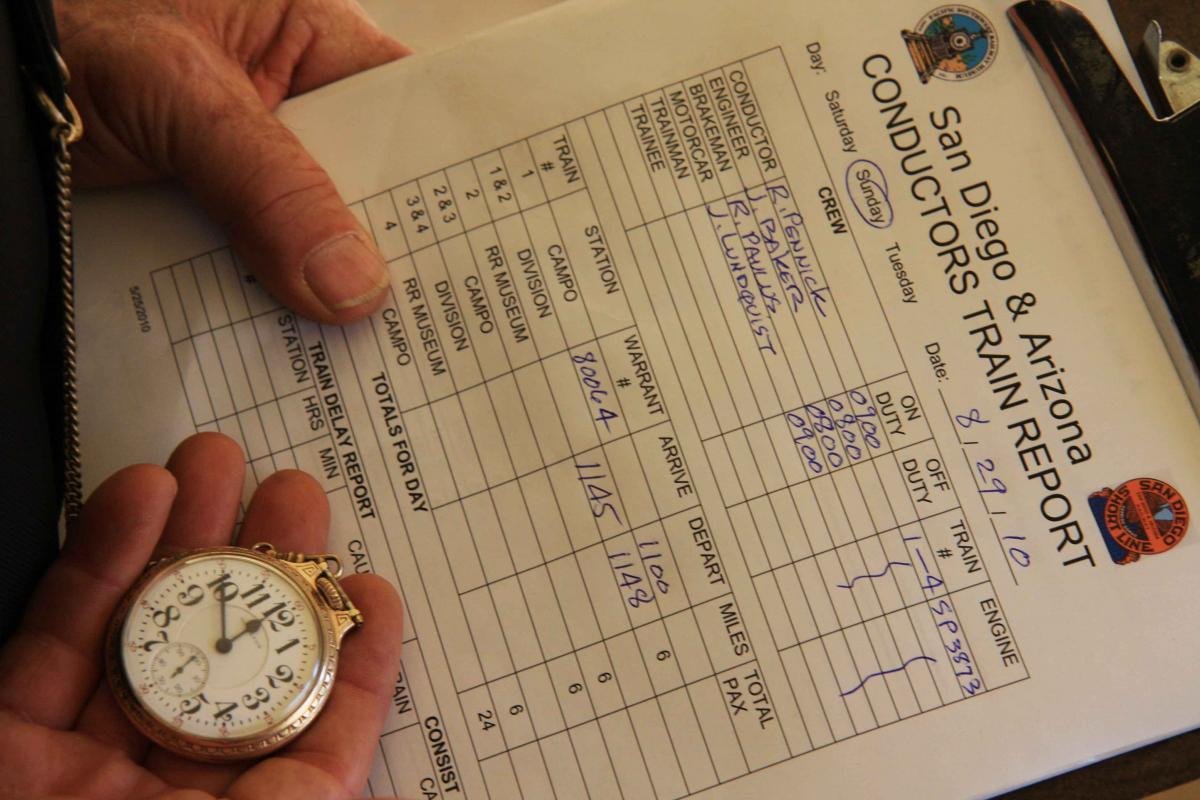 San Diego & Arizona
CONDUCTORS TRAIN REPORT
PACIFIC SOUTHWEST RAILWAY MUSEUM
SAN DIEGO SHORT LINE
Day: Saturday Sunday Tuesday Date: 8, 29, 10
CREW ON DUTY OFF DUTY TRAIN # ENGINE
CONDUCTOR R. PENNICK 0900 1-4 SP3873
ENGINEER J. BAKER 0800
BRAKEMAN R. 0800
MOTORCAR J. LUNDQUIST 0900
TRAINMAN
TRAINEE
TRAIN # STATION WARRANT # ARRIVE DEPART MILES TOTAL PAX
1 CAMPO 80064 1100
1 & 2 DIVISION 1145 1148 6
2 RR MUSEUM
2 & 3 CAMPO 6
3 & 4 DIVISION 6
4 RR MUSEUM
CAMPO 6
TOTALS FOR DAY 24
TRAIN DELAY REPORT CONSIST
# STATION HRS MIN CAU
5/25/2010
12
1
2
3
4
5
7
8
9
10
11